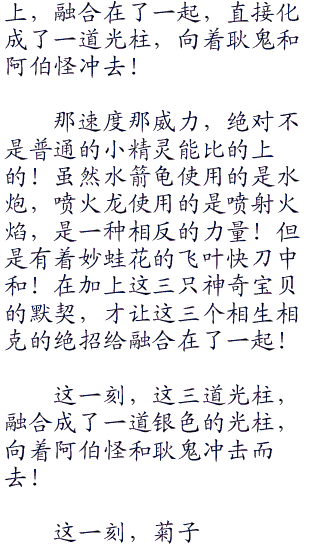 上，融合在了一起，直接化
成了一道光柱，向着耿鬼和
阿伯怪冲去！
那速度那威力，绝对不
是普通的小精灵能比的上
的！虽然水箭龟使用的是水
炮，喷火龙使用的是喷射火
焰，是一种相反的力量！但
是有着妙蛙花的飞叶快刀中
和！在加上这三只神奇宝贝
的默契，才让这三个相生相
克的绝招给融合在了一起！
这一刻，这三道光柱，
融合成了一道银色的光柱，
向着阿伯怪和耿鬼冲击而
去！
这一刻，菊子